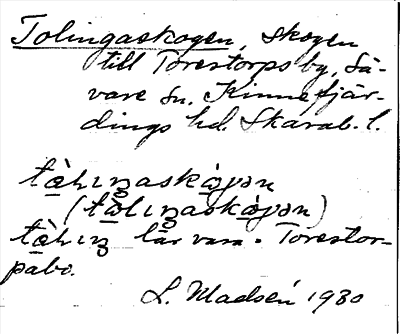 Tolingaskogen, skogen
till Torestorps by, Sä-
vare sn. Kinnefjär-
dings hd. Skarab. l.
tæ̀lıŋaskò̱ɡən
(tö̀lıŋaskò̱ɡən)
tæ̀lıŋ lär vara = Torestor-
pabo.
L. Madsén 1930